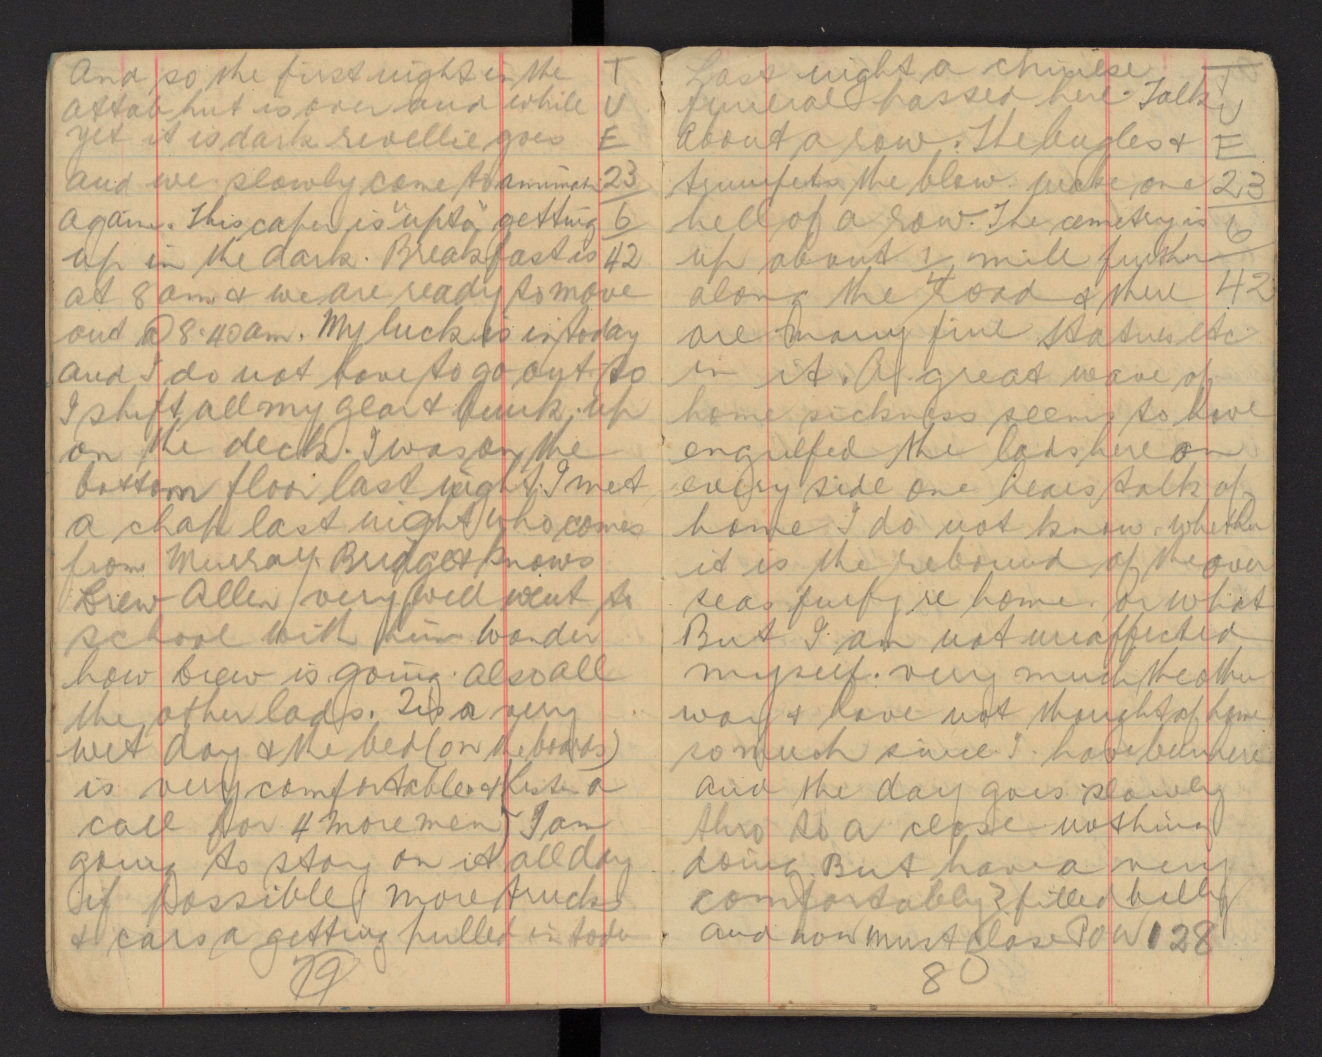 And so the first night in the T
attab hut is over and while U
yet it is dark revellie goes E
and we slowly come to animati 23
again. This caper is "upta" getting 6
up in the dark. Breakfast is 42
at 8 am & we are ready to move
out @ 8.40 am. My luck is in today
and I do not have to go out. So
I shift all my gear & bunk up
on the deck. I was on the
bottom floor last night. I met
a chap last night who comes
from Murray Bridge & knows
Brew Allen very well went to
school with him wonder
how brew is going. also all
the other lads. Tis a very
wet day & the bed (on the boards)
is very comfortable & there is a
call for 4 more men) I am
going to stay on it all day
if possible more trucks
& cars a getting pulled in toda
79
Last night a chinese T
funeral passed here. Talk U
about a row. The bugles & E
trumpets the blow. make one 23
hell of a row. The cemetry is 6
up about 1/4 mile further
along the road & there 42
are many fine statues etc
in it. A great wave of
home sickness seems to have
engulfed the lads here on
every side one hears talk of
home I do not know. whether
it is the rebound of the over
seas furfy re home. or what
But I am not uneffected
myself. very much the other
way & have not thought of home
so much since I have been here
and the day goes slowly
thro to a close nothing
doing. But have a very
comfortably? filled belly
and now must close POW 128
80